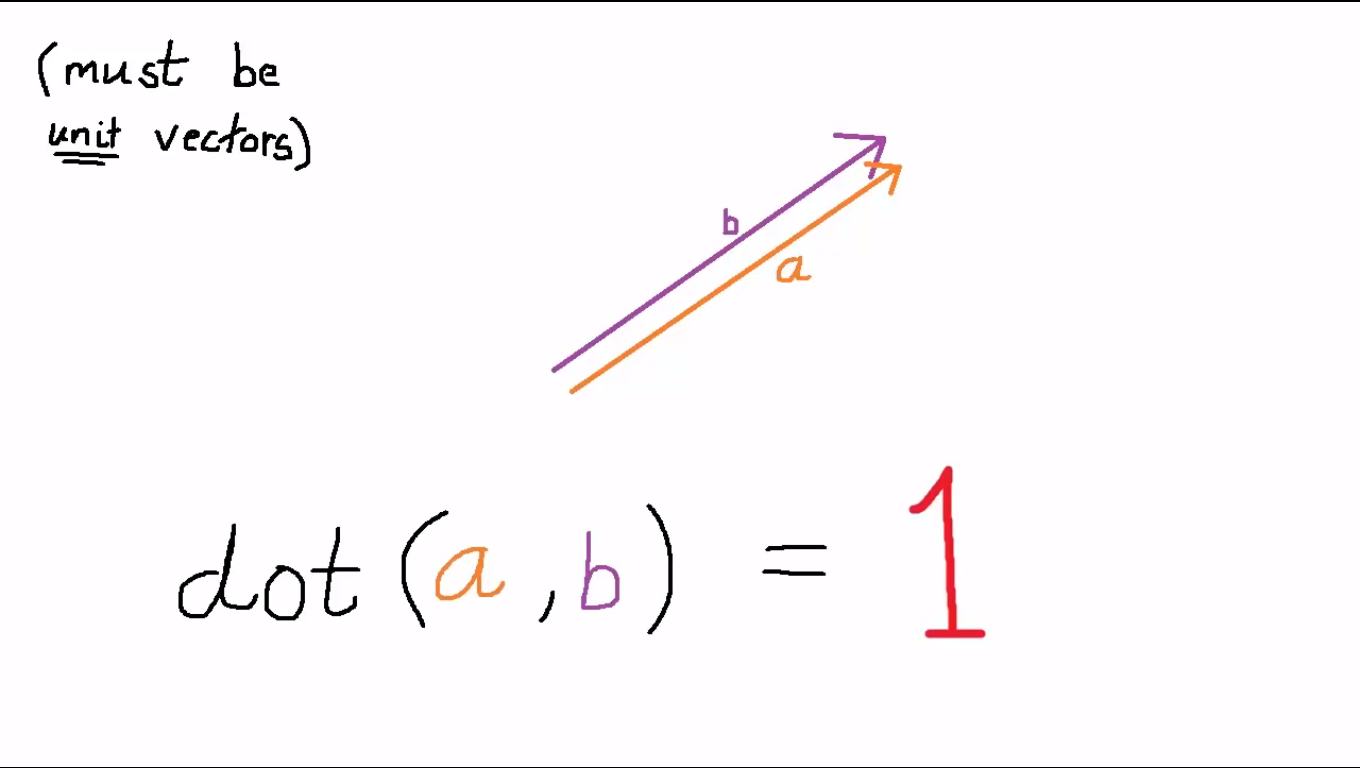 (must be
unit vectors)
b
a
dot(a,b) = 1